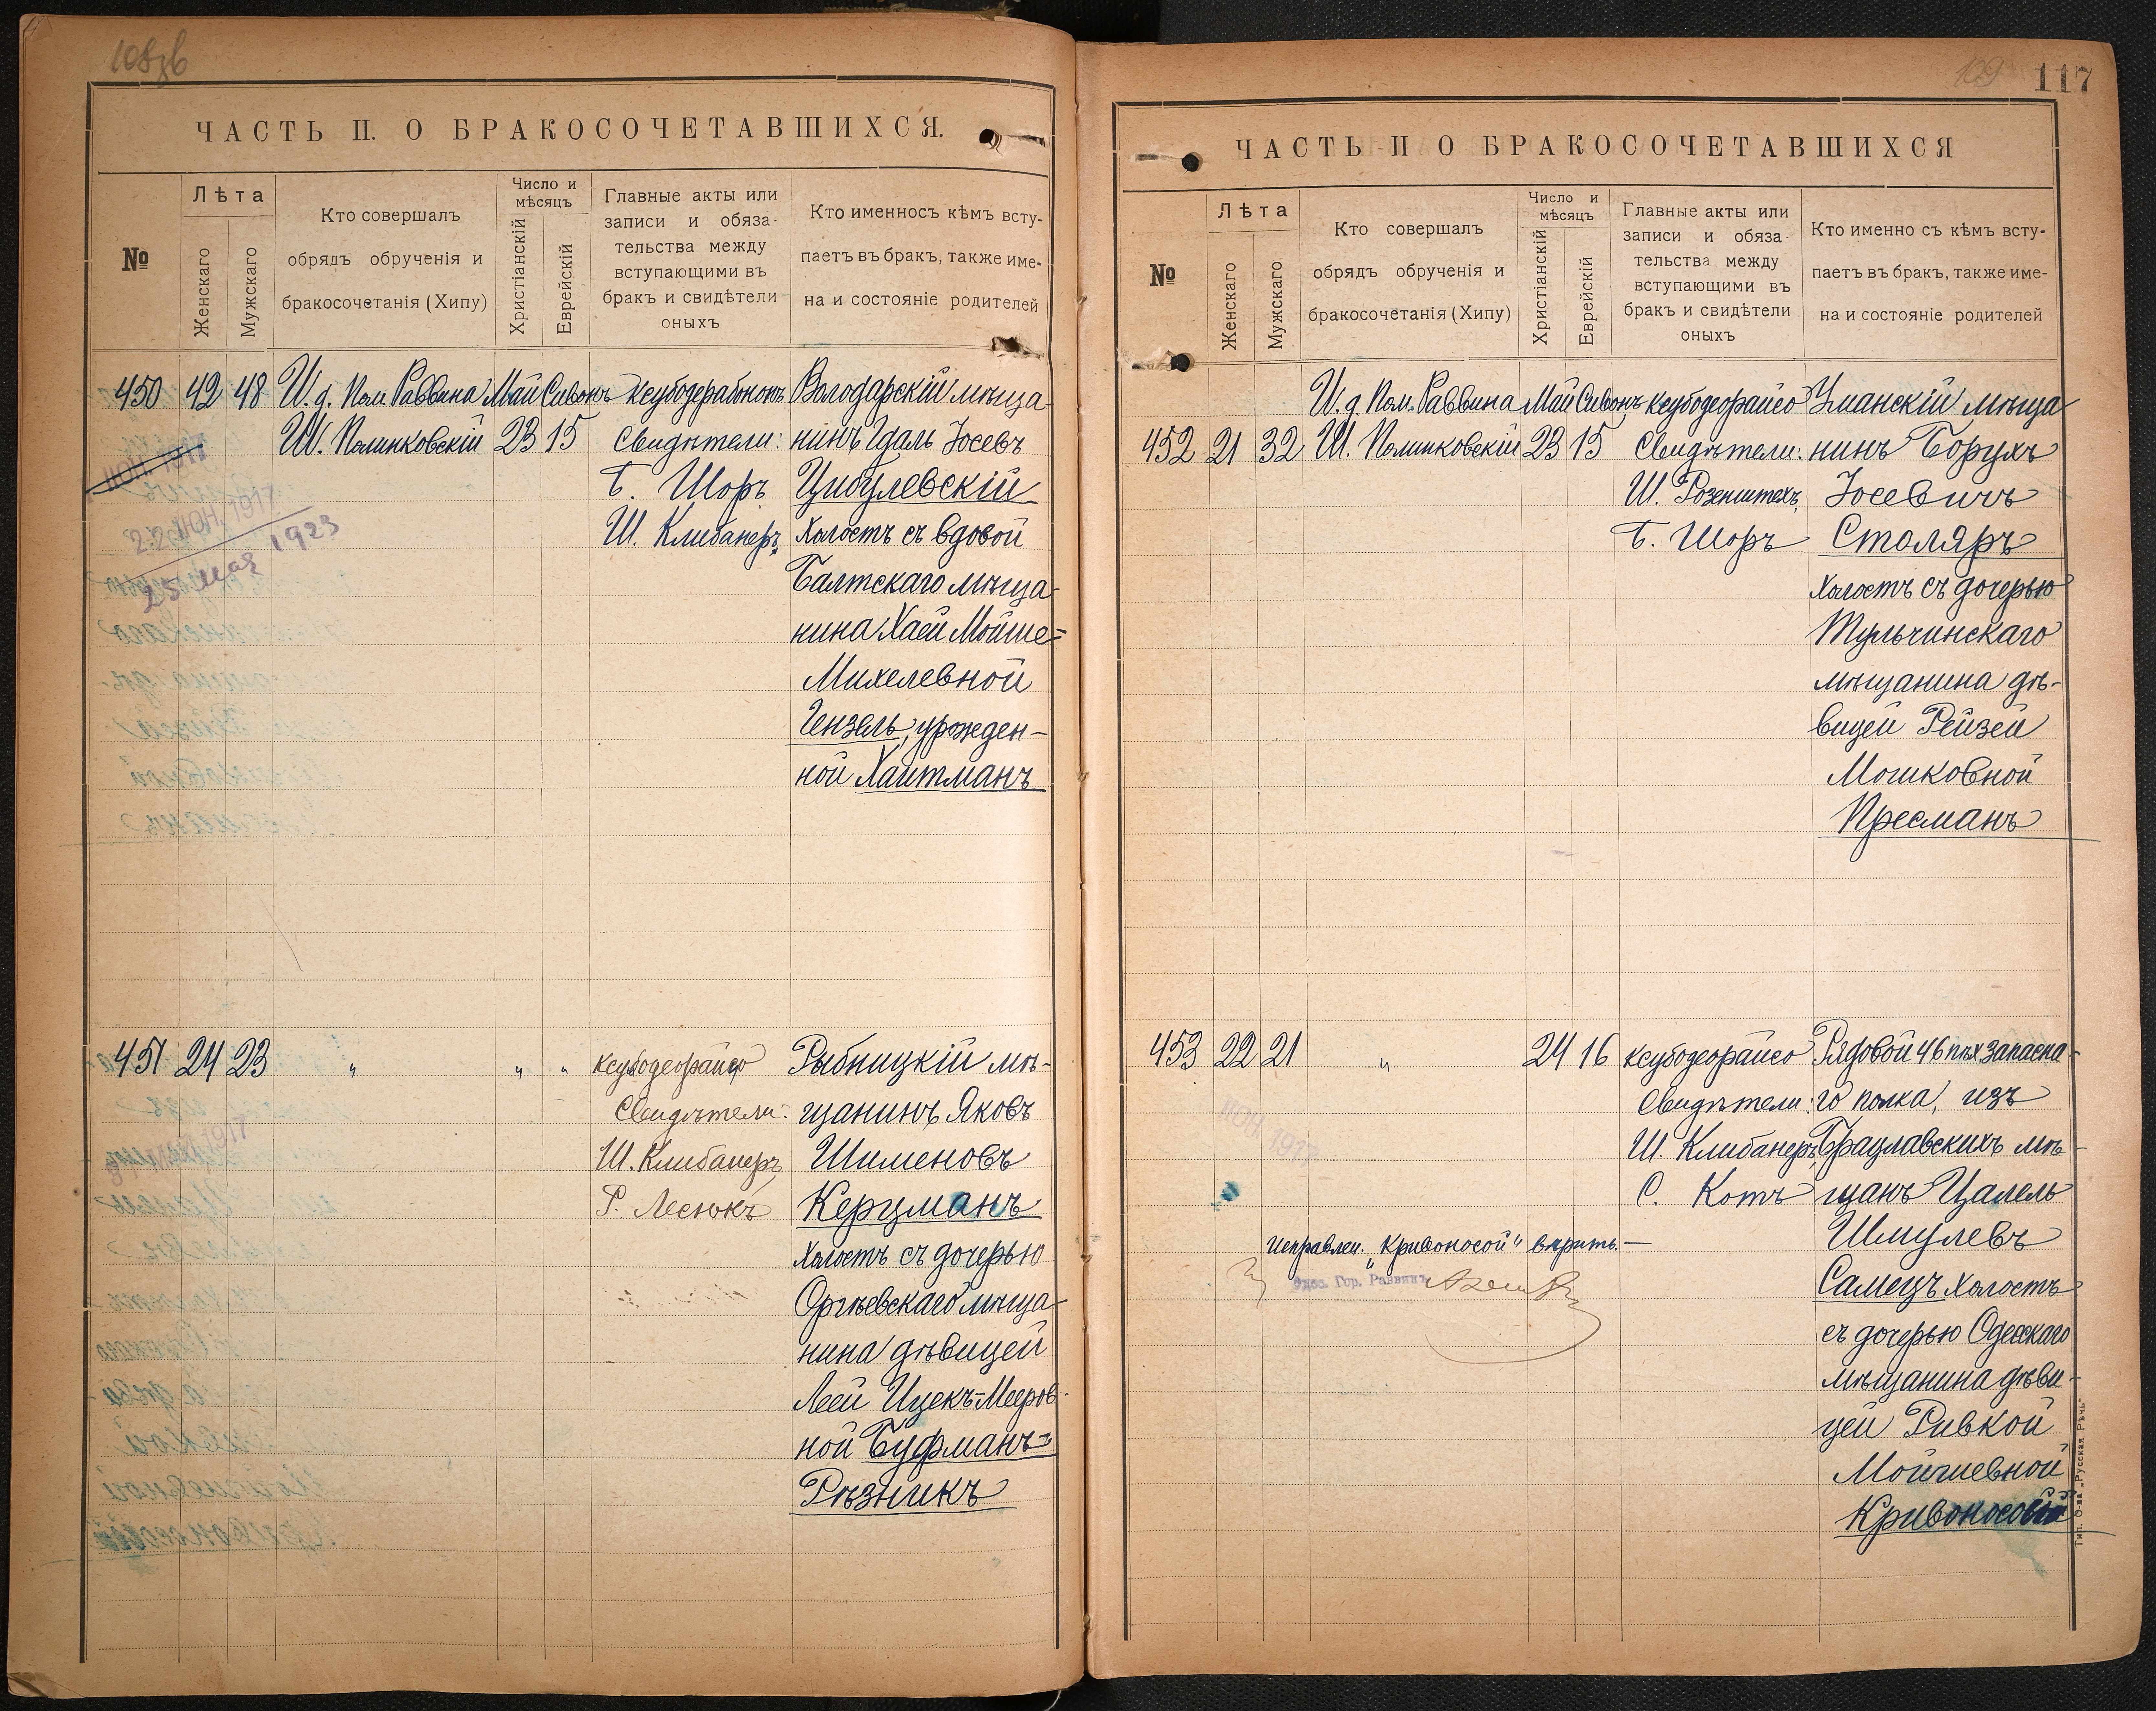 108зв
ЧАСТЬ II. О БРАКОСОЧЕТАВШИХСЯ.
№
Лѣта
Женскаго
Мужскаго
Кто совершалъ
обрядъ обрученія и
бракосочетанія (Хипу)
Число и
мѣсяцъ
Христіанскій
Еврейскій
Главные акты или
записи и обяза-
тельства между
вступающими въ
бракъ и свидѣтели
оныхъ
Кто именносъ кѣмъ всту-
паетъ въ бракъ, также име-
на и состояніе родителей
450 42 48 И. д. Пом. Раввина Май Сивонъ
Ш. Полинковскій 23 15
Свидѣтели:
Б. Шоръ
Ш. Клибанеръ
Володарскій мѣща-
нинъ Идаль Іосевъ
Цибулевскій
холостъ съ вдовой
Балтскаго мѣща-
нина Хаей Мойше=
Михелевной
Гензель, урожден-
ной Хаитманъ
ІЮН. 1917
25 мая 1923
451 24 23 „ „ „
ксубодеорайсо
Свидѣтели:
Ш. Клибанеръ,
Р. Лесюкъ
Рыбницкій мѣ-
щанинъ Яковъ
Шименовъ
Керцманъ
холостъ съ дочерью
Оргѣевскаго мѣща-
нина дѣвицей
Леей Ицекъ-Мееров-
ной Буфманъ=
Рѣзникъ
109
117
ЧАСТЬ II О БРАКОСОЧЕТАВШИХСЯ
№
Лѣта
Женскаго
Мужскаго
Кто совершалъ
обрядъ обрученія и
бракосочетанія (Хипу)
Число и
мѣсяцъ
Христіанскій
Еврейскій
Главные акты или
записи и обяза-
тельства между
вступающими въ
бракъ и свидѣтели
оныхъ
Кто именно съ кѣмъ всту-
паетъ въ бракъ, также име-
на и состояніе родителей
И. д. Пом. Раввина Май Сивонъ
452 21 32 Ш. Полинковскій 23 15
ксубодеорайсо
Свидѣтели:
Ш. Розенштехъ,
Б. Шоръ
Уманскій мѣща-
нинъ Борухъ
Іосевичъ
Столяръ
холостъ съ дочерью
Тульчинскаго
мѣщанина дѣ-
вицей Рейзей
Мошковной
Пресманъ
453 22 21 „ 24 16
ксубодеорайсо
Свидѣтели:
Ш. Клибанеръ,
С. Котъ
Рядовой 46 пѣх запасна-
го полка, изъ
Брацлавскихъ мѣ-
щанъ Цалель
Шмулевъ
Самецъ холостъ
съ дочерью Одесскаго
мѣщанина дѣви-
цей Ривкой
Мойшевной
Кривоносой
ІЮН. 1917
Исправлен. „Кривоносой“ вѣрить.—
Одес. Гор. Раввинъ
Тип. О-ва „Русская Рѣчь“